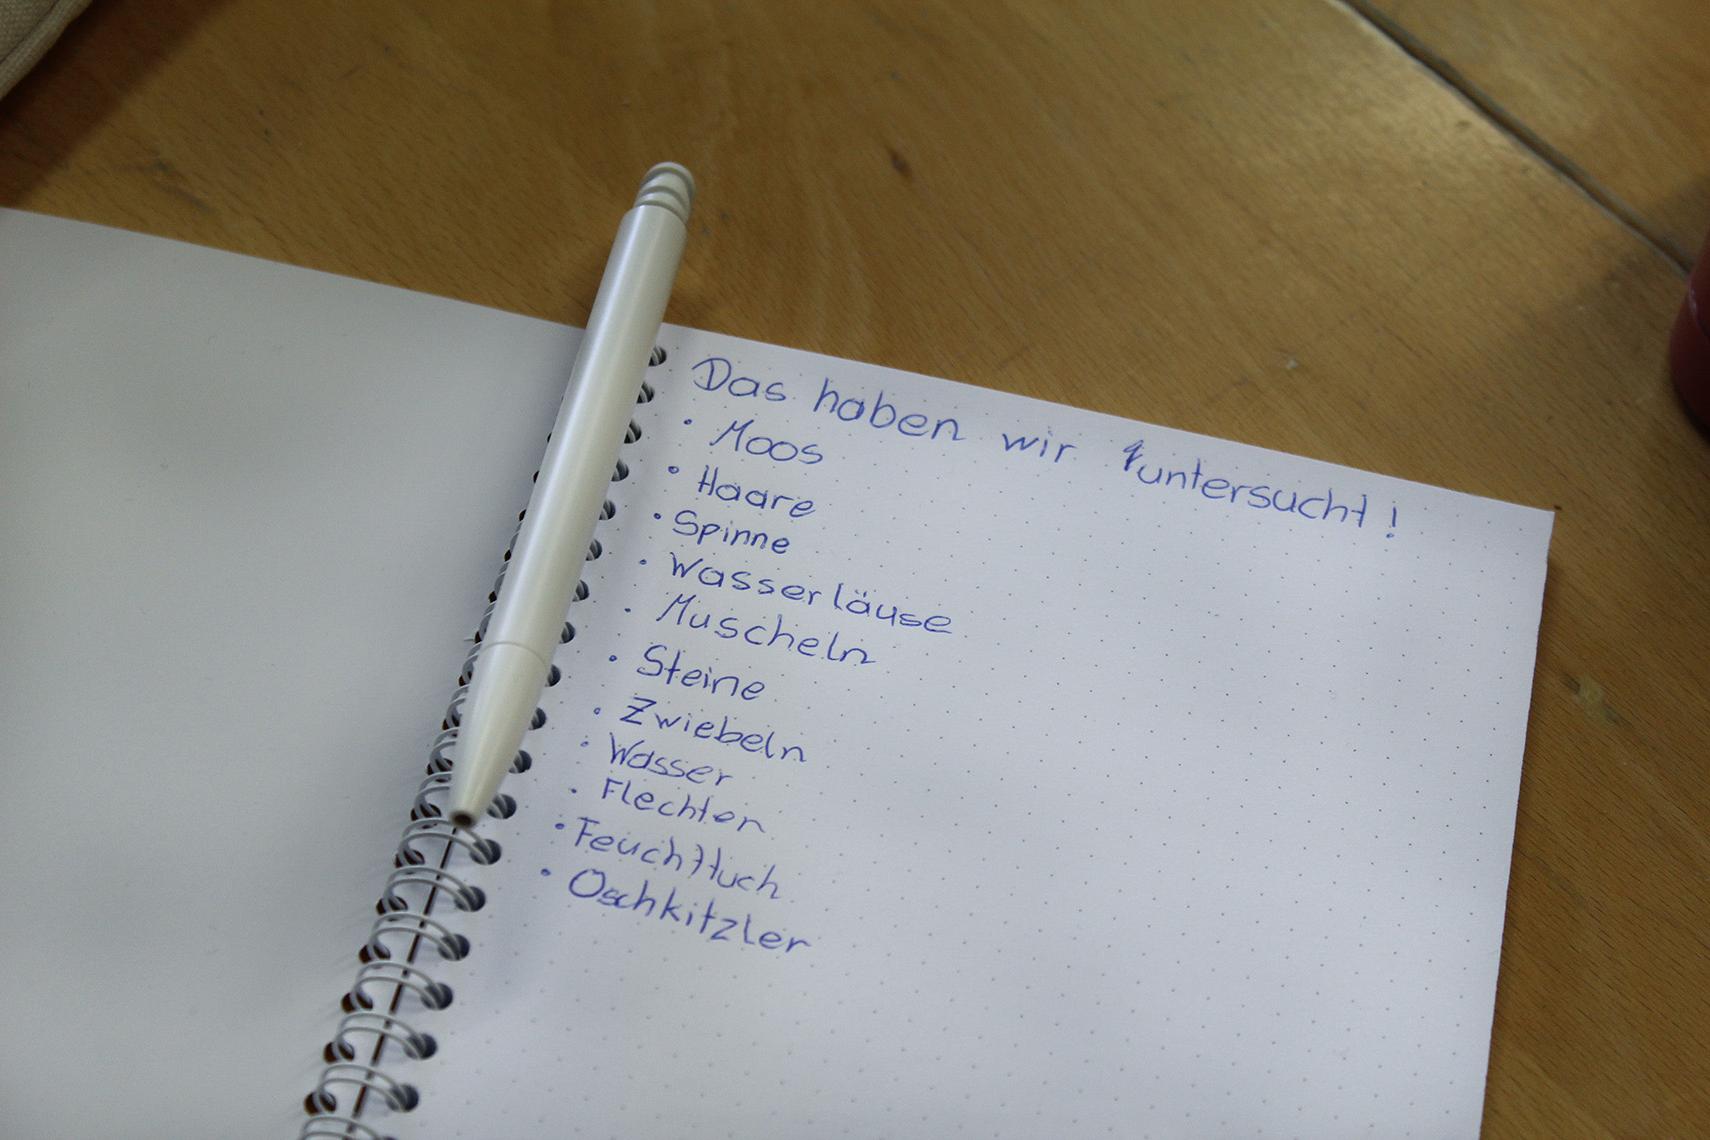 Das haben wir untersucht!
• Moos
• Haare
• Spinne
• Wasserläuse
• Muscheln
• Steine
• Zwiebeln
• Wasser
• Flechten
• Feuchttuch
• Oschkitzler